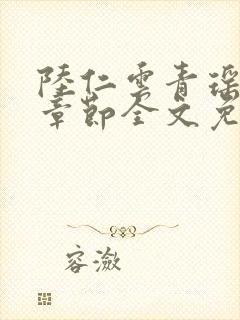 陸仁雲青瑶
章節全文免
容潋